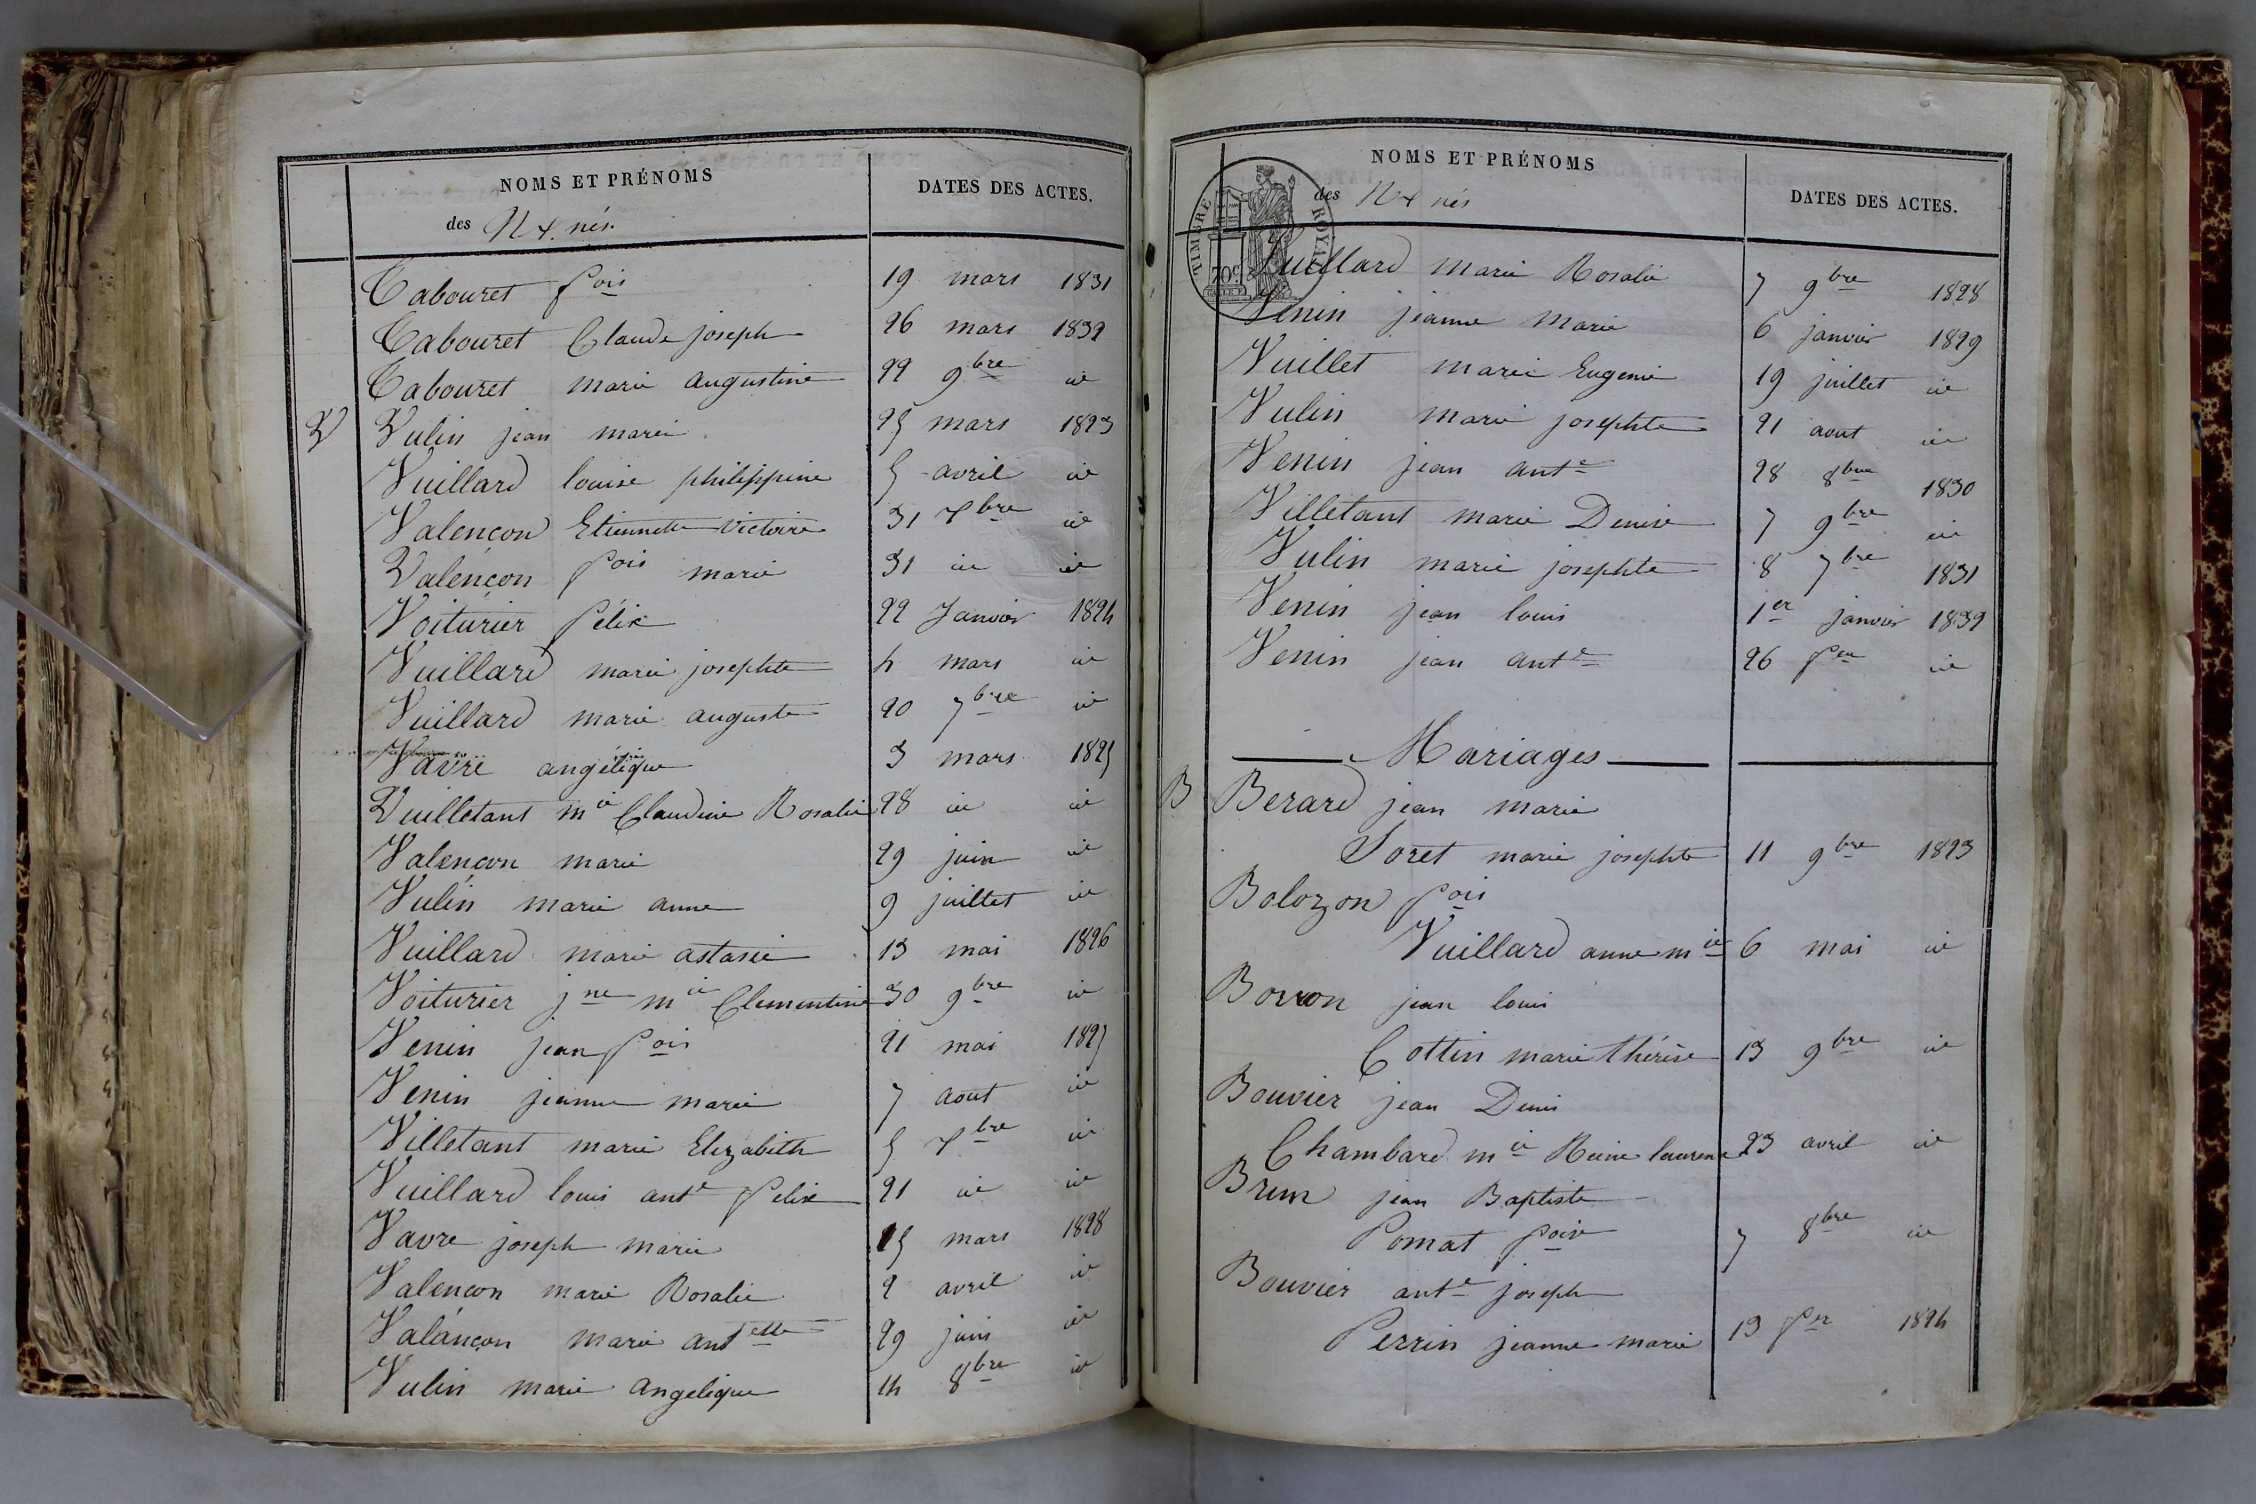 NOMS ET PRÉNOMS
des N x nés.
DATES DES ACTES.
Tabouret fois 19 mars 1831
Tabouret Claude joseph 26 mars 1832
Tabouret marie augustine 22 9bre id
V Vulin jean marie 25 mars 1823
Vuillard louise philippine 5 avril id
Valençon Etiennette Victoire 31 Xbre id
Valençon fois marie 31 id id
Voiturier félix 22 Janvier 1824
Vuillard marie josephte 4 mars id
Vuillard marie auguste 20 7bre id
Vavre angélique 3 mars 1825
Vuilletant mie Claudine Rosalie 28 id id
Valençon marie 29 juin id
Vulin marie anne 9 juillet id
Vuillard marie astasie 13 mai 1826
Voiturier jne mie Clementine 30 9bre id
Venin jean fois 21 mai 1827
Venin jeanne marie 7 aout id
Villetant marie Elizabeth 5 Xbre id
Vuillard louis ante felix 21 id id
Vavre joseph marie 15 mars 1828
Valençon marie Rosalie 2 avril id
Valançon marie antette 29 juin id
Vulin marie angelique 14 8bre id
NOMS ET PRÉNOMS
des N x nés
DATES DES ACTES.
TIMBRE ROYAL
70c
Vuillard marie Rosalie 7 9bre 1828
Venin jeanne marie 6 janvier 1829
Vuillet marie Eugenie 19 juillet id
Vulin marie josephte 21 aout id
Venin jean ante 28 8bre 1830
Villetant marie Denise 7 9bre id
Vulin marie josephte 8 7bre 1831
Venin jean louis 1er janvier 1832
Venin jean ante 26 fer id
Mariages
B Berard jean marie
Soret marie josephte 11 9bre 1823
Bolozon fois
Vuillard anne mie 6 mai id
Borron jean louis
Cottin marie thérèse 13 9bre id
Bouvier jean Denis
Chambard mie Reine laurence 23 avril id
Brun jean Baptiste
Pomat foise 7 8bre id
Bouvier ante joseph
Perrin jeanne marie 19 fer 1824